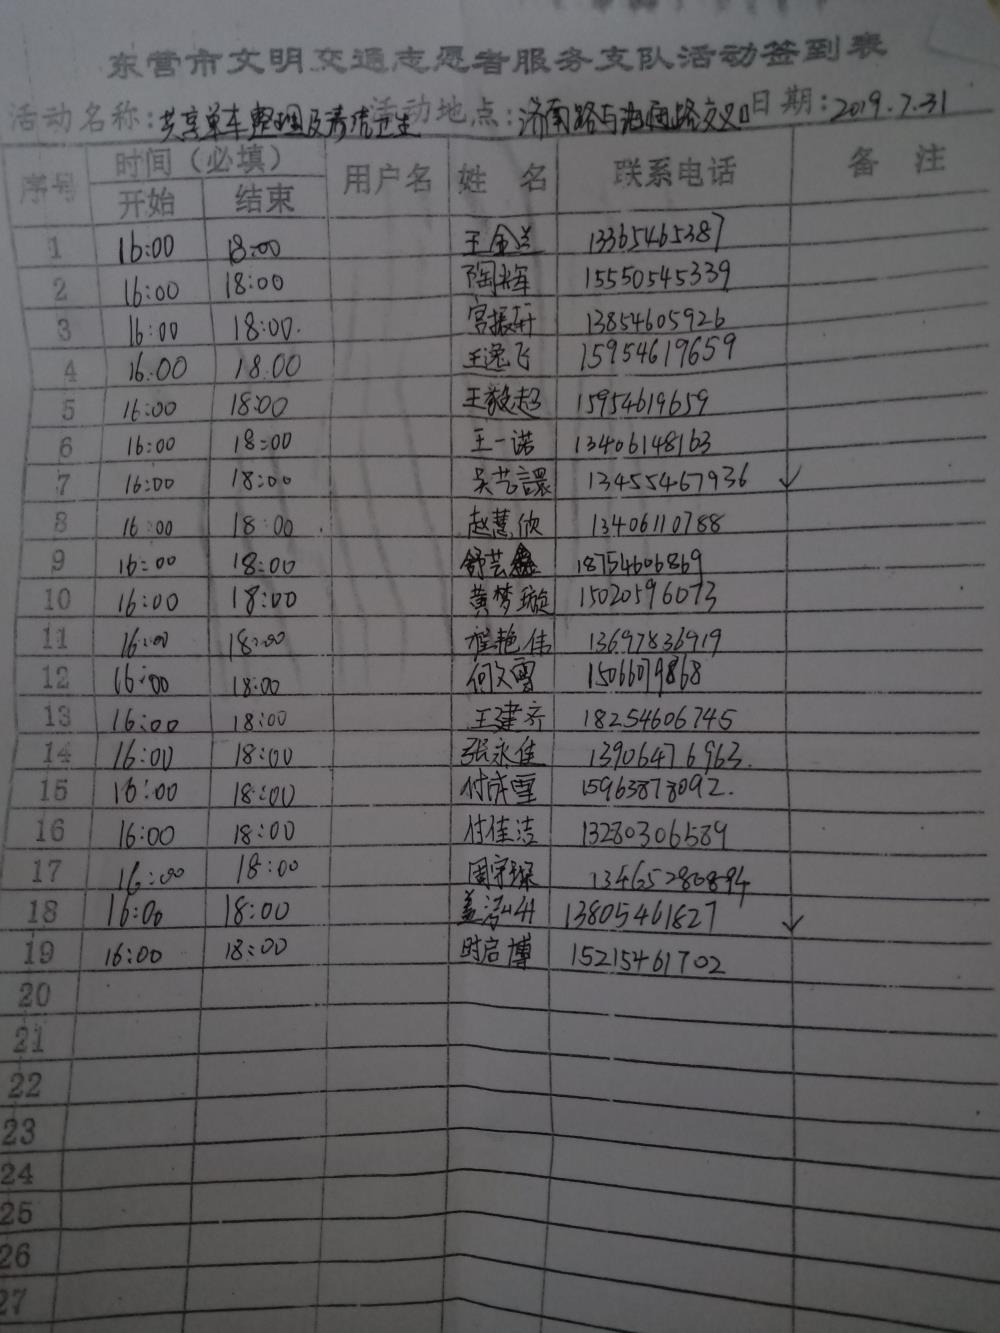 东营市文明交通志愿者服务支队活动签到表
活动名称：共享单车整理及清洁卫生 活动地点：济南路与 路交叉口 日期：2019.7.31
序号 时间（必填） 用户名 姓 名 联系电话 备 注
开始 结束
1 16:00 18:00 王金兰 13365465387
2 16:00 18:00 陶辉 15550545339
3 16:00 18:00. 宫振轩 13854605926
4 16.00 18.00 王逸飞 15954619659
5 16:00 18:00 王毅超 15954619659
6 16:00 18:00 王一诺 13406148163
7 16:00 18:00 吴艺譞 13455467936 ✓
8 16:00 18:00 赵慧欣 13406110788
9 16:00 18:00 舒芸鑫 18754606869
10 16:00 18:00 黄梦璇 15020596073
11 16:00 18:00 程艳伟 13697836919
12 16:00 18:00 何文雪 15066079868
13 16:00 18:00 王建齐 18254606745
14 16:00 18:00 张永佳 13906476963.
15 16:00 18:00 付成雪 15963878092.
16 16:00 18:00 付佳洁 13280306589
17 16:00 18:00 周宇琛 13465280894
18 16:00 18:00 盖 13805461827 ✓
19 16:00 18:00 时启博 15215461702
20
21
22
23
24
25
26
27